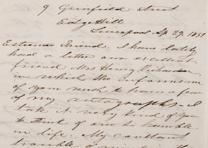 9 Grinfield Street
Edge Hill
Liverpool Sep 29. 1851
Esteemed Friend, I have lately
had a letter from an excellent
friend Mrs Henry Richardson
in which she informs me
of your wish to have a few
of my autographs. I
take it very kind of you
to think of one so humble
in life. My constant